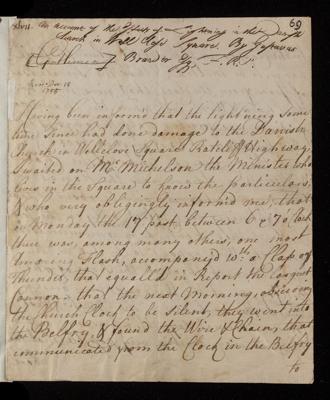 69
An account of the Effects of Lightning in the Danish
Church in Well Close Square. By Gustavus
Brander Esq. F.R.S.
Gentlemen
Read Dec. 18
1755
Having been inform'd that the lightning some
time since had done damage to the Danish
Church in Wellclose Square Ratcliff Highway,
I waited on Mr. Michelson the Minister who
lives in the Square to know the particulars,
& who very obligingly inform'd me, that
on Monday the 17 past between 6 & 7 o Clock
there was, among many others, one most
amazing Flash, accompany'd wth. a Clap of
Thunder, that equall'd in Report the largest
Cannon. that the next Morning,
the Church Clock to be silent, they went into
the Belfry, & found the Wire & Chain, that
communicated from the Clock in the Belfry
to